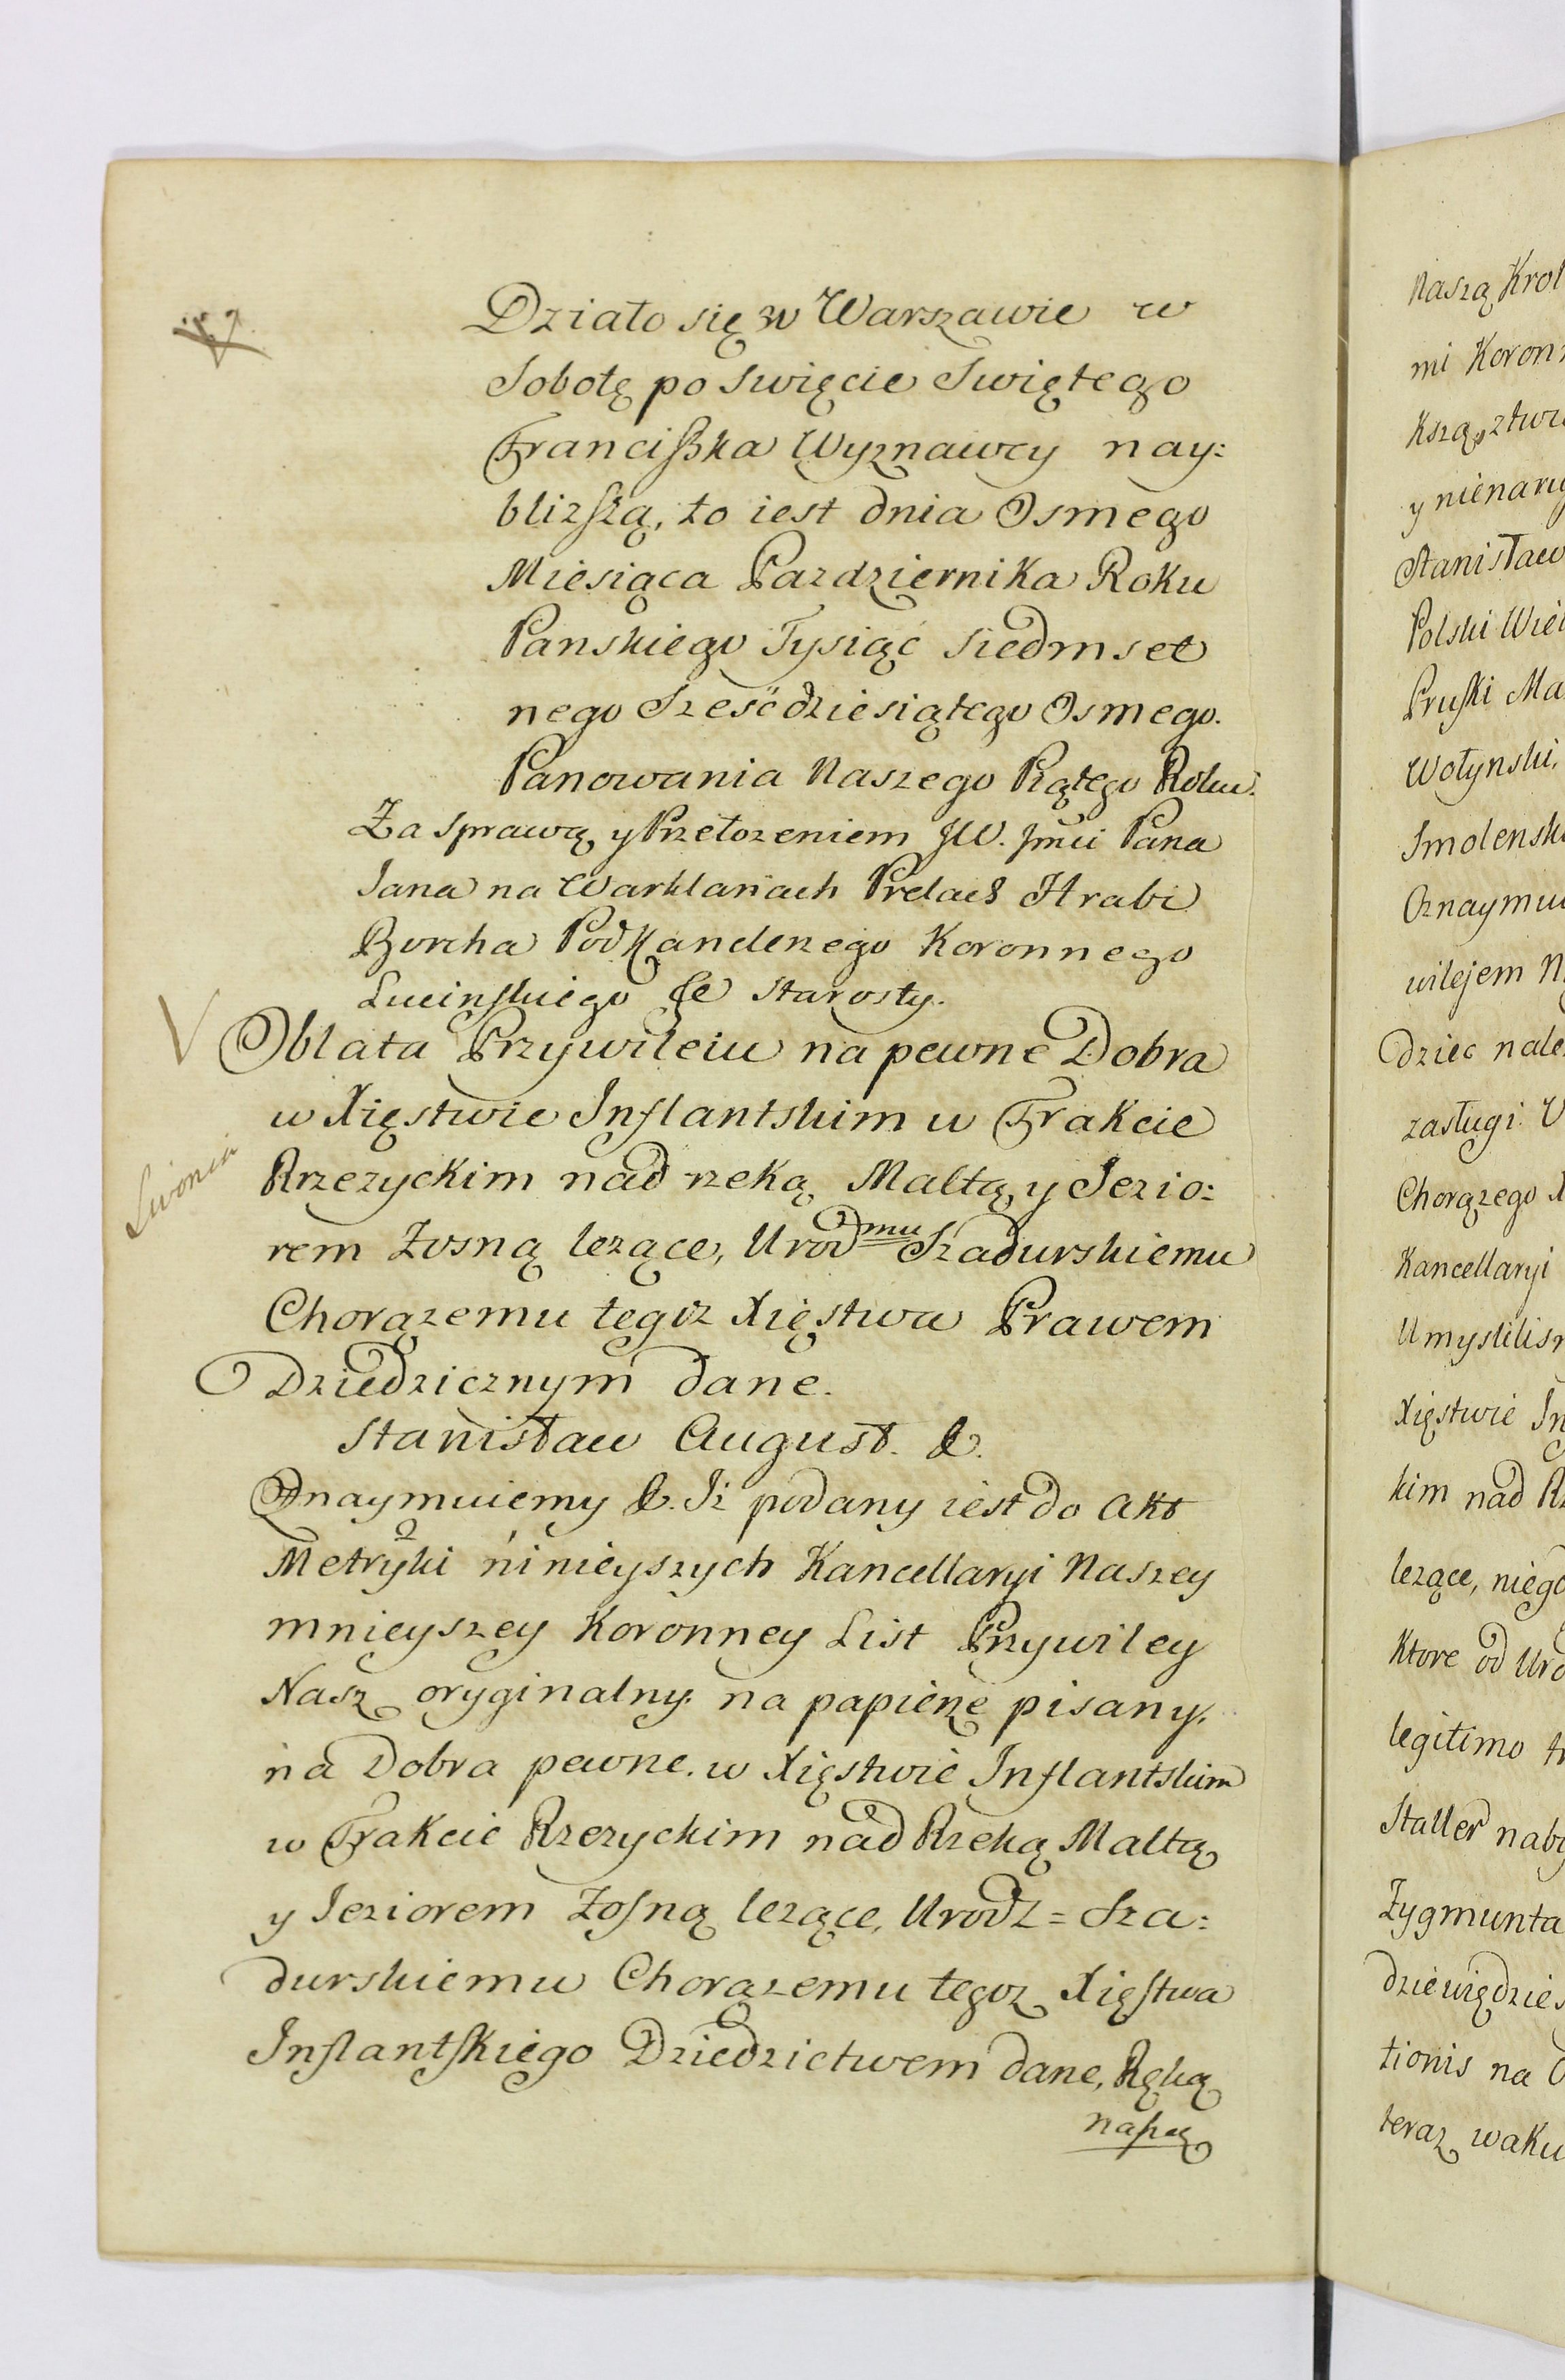 Działo się w Warszawie w
Sobotę po Swięcie Swiętego
Franciszka Wyznawcy nay:
blizszą, to iest dnia Osmego
Miesiąca Pazdziernika Roku
Panskiego Tysiąć Siedmset
nego Sześćdziesiątego Osmego.
Panowania Naszego Piątego Roku.
Za Sprawą y Przełozeniem JW. Jmći Pana
Jana na Warklanach Prelach Hrabi
Borcha Podkanclerzego Koronnego
Lucinskiego &c Starosty.
V Oblata Przywileiu na pewne Dobra
w Xięstwie Inflantskim w Trakcie
Livonia
Rzezyckim nad rzeką Maltą, y Jezio:
rem Zosną lezące, Urodmu Szadurskiemu
Chorązemu tegoz Xięstwa Prawem
Dziedzicznym dane.
Stanisław August. &.
Oznaymuiemy &. Iż podany iest do Akt
Metryki ninieyszych Kancellaryi Naszey
mnieyszey Koronney List Przywiley
Nasz oryginalny na papierze pisany,
na Dobra pewne w Xięstwie Inflantskim
w Trakcie Rzezyckim nad Rzeką Maltą
y Jeziorem Zosną lezące, Urodz = Sza:
durskiemu Chorązemu tegoz Xięstwa
Inflantskiego Dziedzictwem dane, Ręką
naszą
Naszą Krol
mi Koron
Ksząsztwi
y nienaru
Stanisław
Polski Wiel
Pruski Ma
Wołynski,
Smolensk
Oznaymu
wilejem N
dziec nale
zasługi U
Chorązego X
Kancellaryi
Umyslilis
Xięstwie In
kim nad Rz
lezące, niegd
Ktore od Uro
legitimo tr
Staller naby
Zygmunta
dziewiędzies
tionis na
teraz waku